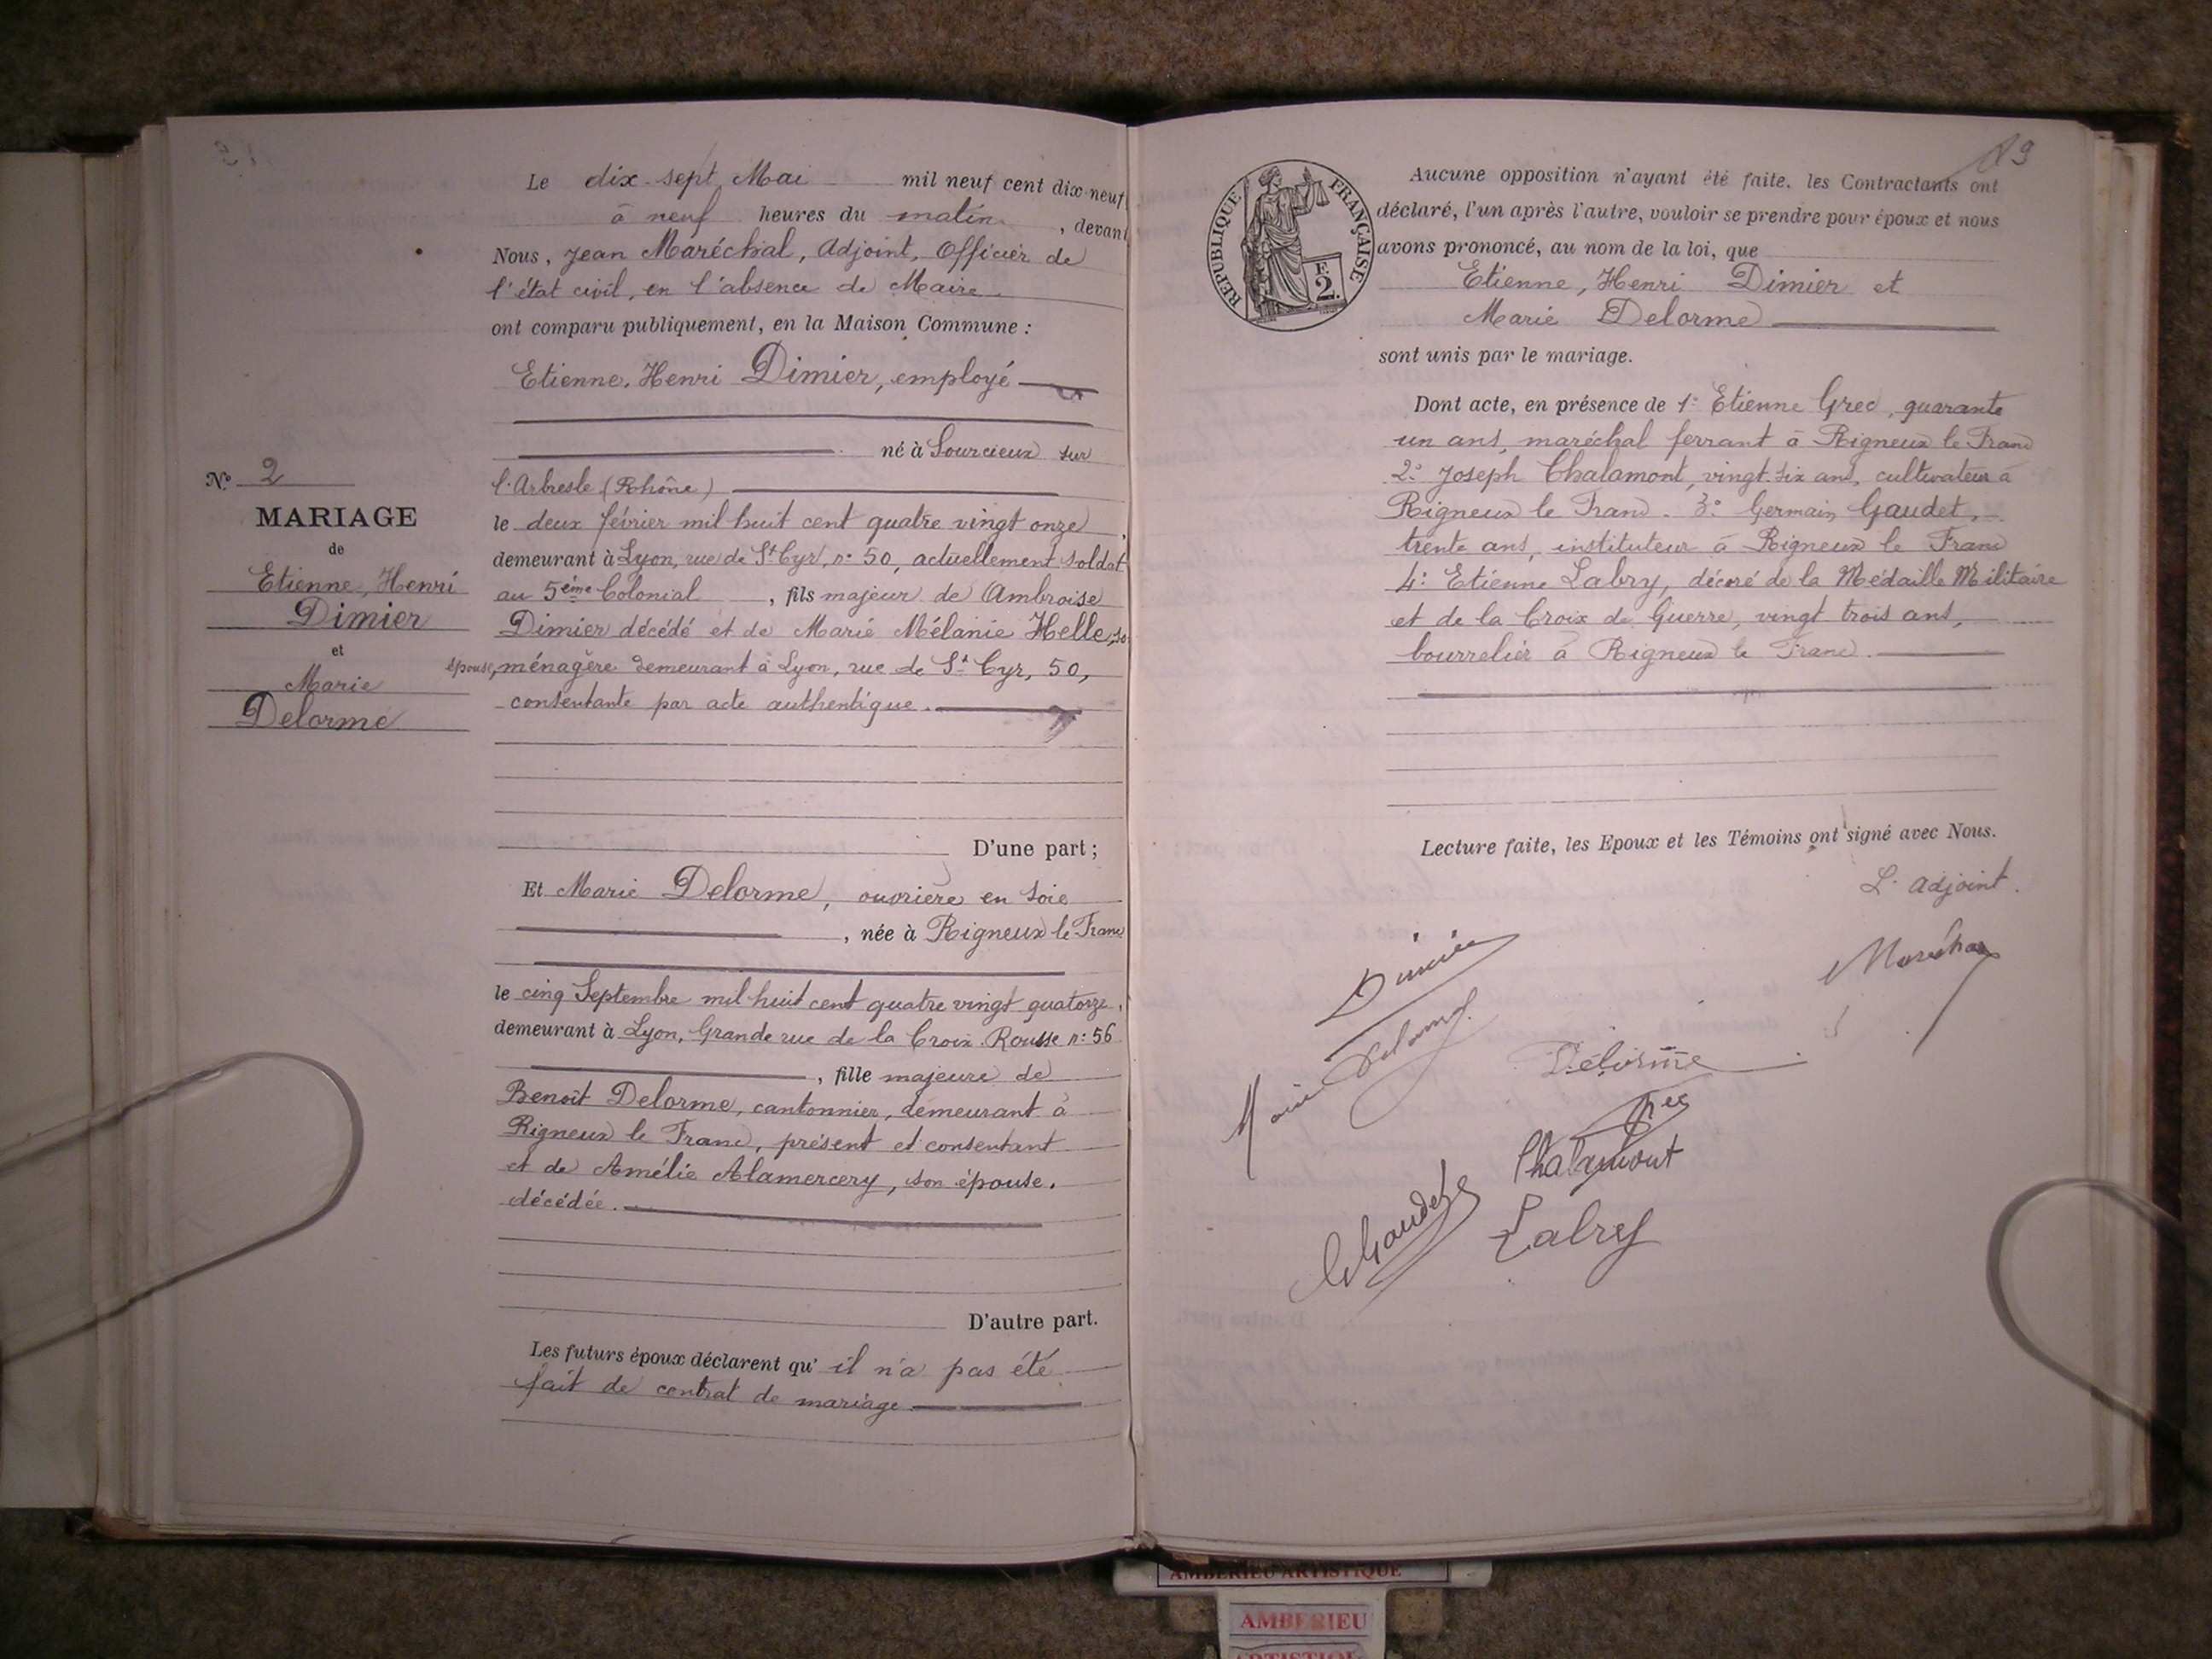 Le dix-sept Mai mil neuf cent dix-neuf
à neuf heures du matin, devant
Nous, Jean Maréchal, Adjoint, Officier de
l'état civil, en l'absence de Maire
ont comparu publiquement, en la Maison Commune :
Etienne, Henri Dimier, employé
né à Sourcieux sur
l'Arbresle (Rhône)
le deux février mil huit cent quatre vingt onze,
demeurant à Lyon, rue de St Cyr, n° 50, actuellement soldat
au 5ème Colonial, fils majeur de Ambroise
Dimier décédé et de Marie Mélanie Helle, so
épouse, ménagère demeurant à Lyon, rue de St Cyr, 50,
consentante par acte authentique.
D'une part ;
Et Marie Delorme, ouvrière en soie
, née à Rigneux le Franc
le cinq Septembre mil huit cent quatre vingt quatorze,
demeurant à Lyon, Grande rue de la Croix-Rousse n° 56
, fille majeure de
Benoît Delorme, cantonnier, demeurant à
Rigneux le Franc, présent et consentant
et de Amélie Alamercery, son épouse.
décédée.
D'autre part.
Les futurs époux déclarent qu'il n'a pas été
fait de contrat de mariage
N° 2
MARIAGE
de
Etienne, Henri
Dimier
et
Marie
Delorme
89
RÉPUBLIQUE FRANÇAISE
F.
2.
Aucune opposition n'ayant été faite, les Contractants ont
déclaré, l'un après l'autre, vouloir se prendre pour époux et nous
avons prononcé, au nom de la loi, que
Etienne, Henri Dimier et
Marie Delorme
sont unis par le mariage.
Dont acte, en présence de 1° Etienne Grec, quarante
un ans, maréchal ferrant à Rigneux le Franc
2° Joseph Chalamont, vingt-six ans, cultivateur à
Rigneux le Franc. 3° Germain Gaudet,
trente ans, instituteur à Rigneux le Franc
4° Etienne Labry, décoré de la Médaille Militaire
et de la Croix de Guerre, vingt trois ans,
bourrelier à Rigneux le Franc.
Lecture faite, les Epoux et les Témoins ont signé avec Nous.
L'adjoint.
Dimier
Maréchal
Marie Delorme
Delorme
Grec
Chalamont
G Gaudet
Labry
AMBERIEU ARTISTIQUE
AMBERIEU